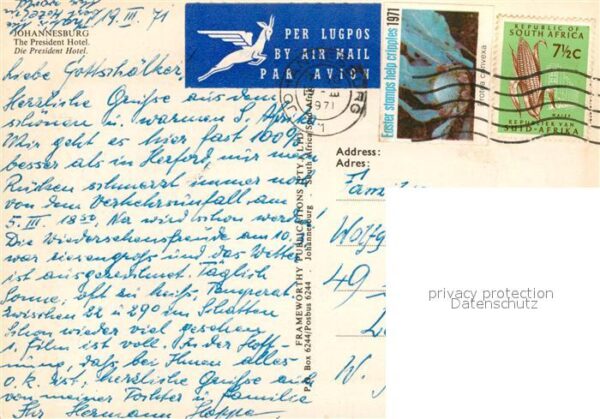 19. III. 71
JOHANNESBURG
The President Hotel.
Die President Hotel.
Liebe Gottschälker,
Herzliche Grüße aus dem
schönen u. warmen S. Afrika
Mir geht es hier fast 100%
besser als in Herford, nur mein
Rücken schmerzt immer noch
von dem Verkehrsunfall am
5. III. 18 50, Na wird schon werden
Die Wiedersehensfreude am 10.
war riesengroß und das Wetter
ist ausgezeichnet. Täglich
Sonne, oft zu heiß, Temperat.
zwischen 22 u 29° im Schatten
Schon wieder viel gesehen
1. Film ist voll. In der Hoff-
nung, daß bei Ihnen alles
o.k. ist, herzliche Grüße auch
von meiner Tochter u Familie
Ihr Hermann Hoppe
PER LUGPOS
BY AIR MAIL
PAR AVION
Easter stamps help cripples 1971
convexa
REPUBLIC OF
SOUTH AFRICA
7½C
REPUBLIEK VAN
SUID-AFRIKA
1971
FRAMEWORTHY PUBLICATIONS (PTY.) LTD.
P.O. Box 6244/Posbus 6244 Johannesburg South Africa/Suid-Afrika
Address:
Adres:
Wolfg
49
W.
privacy protection
Datenschutz